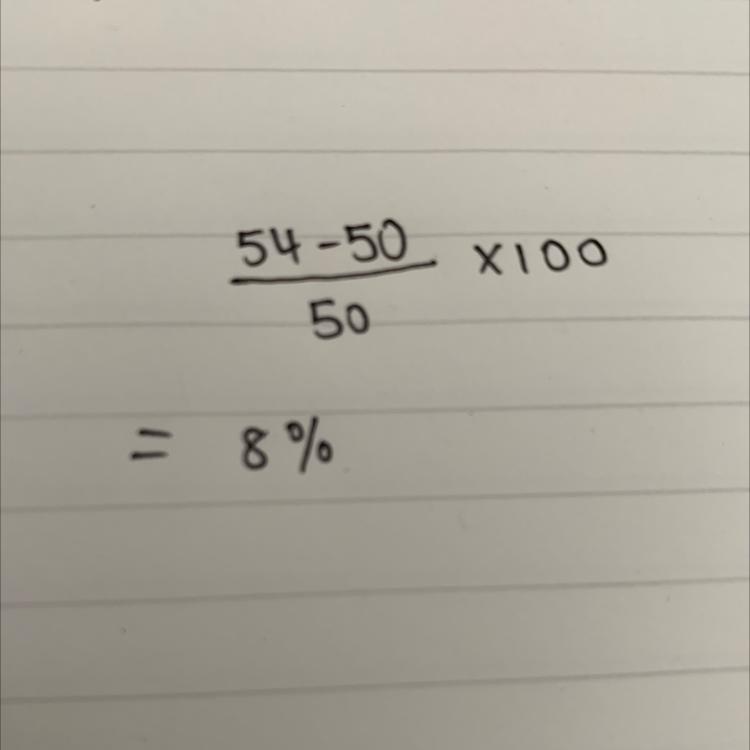 54-50
50
x100
= 8%